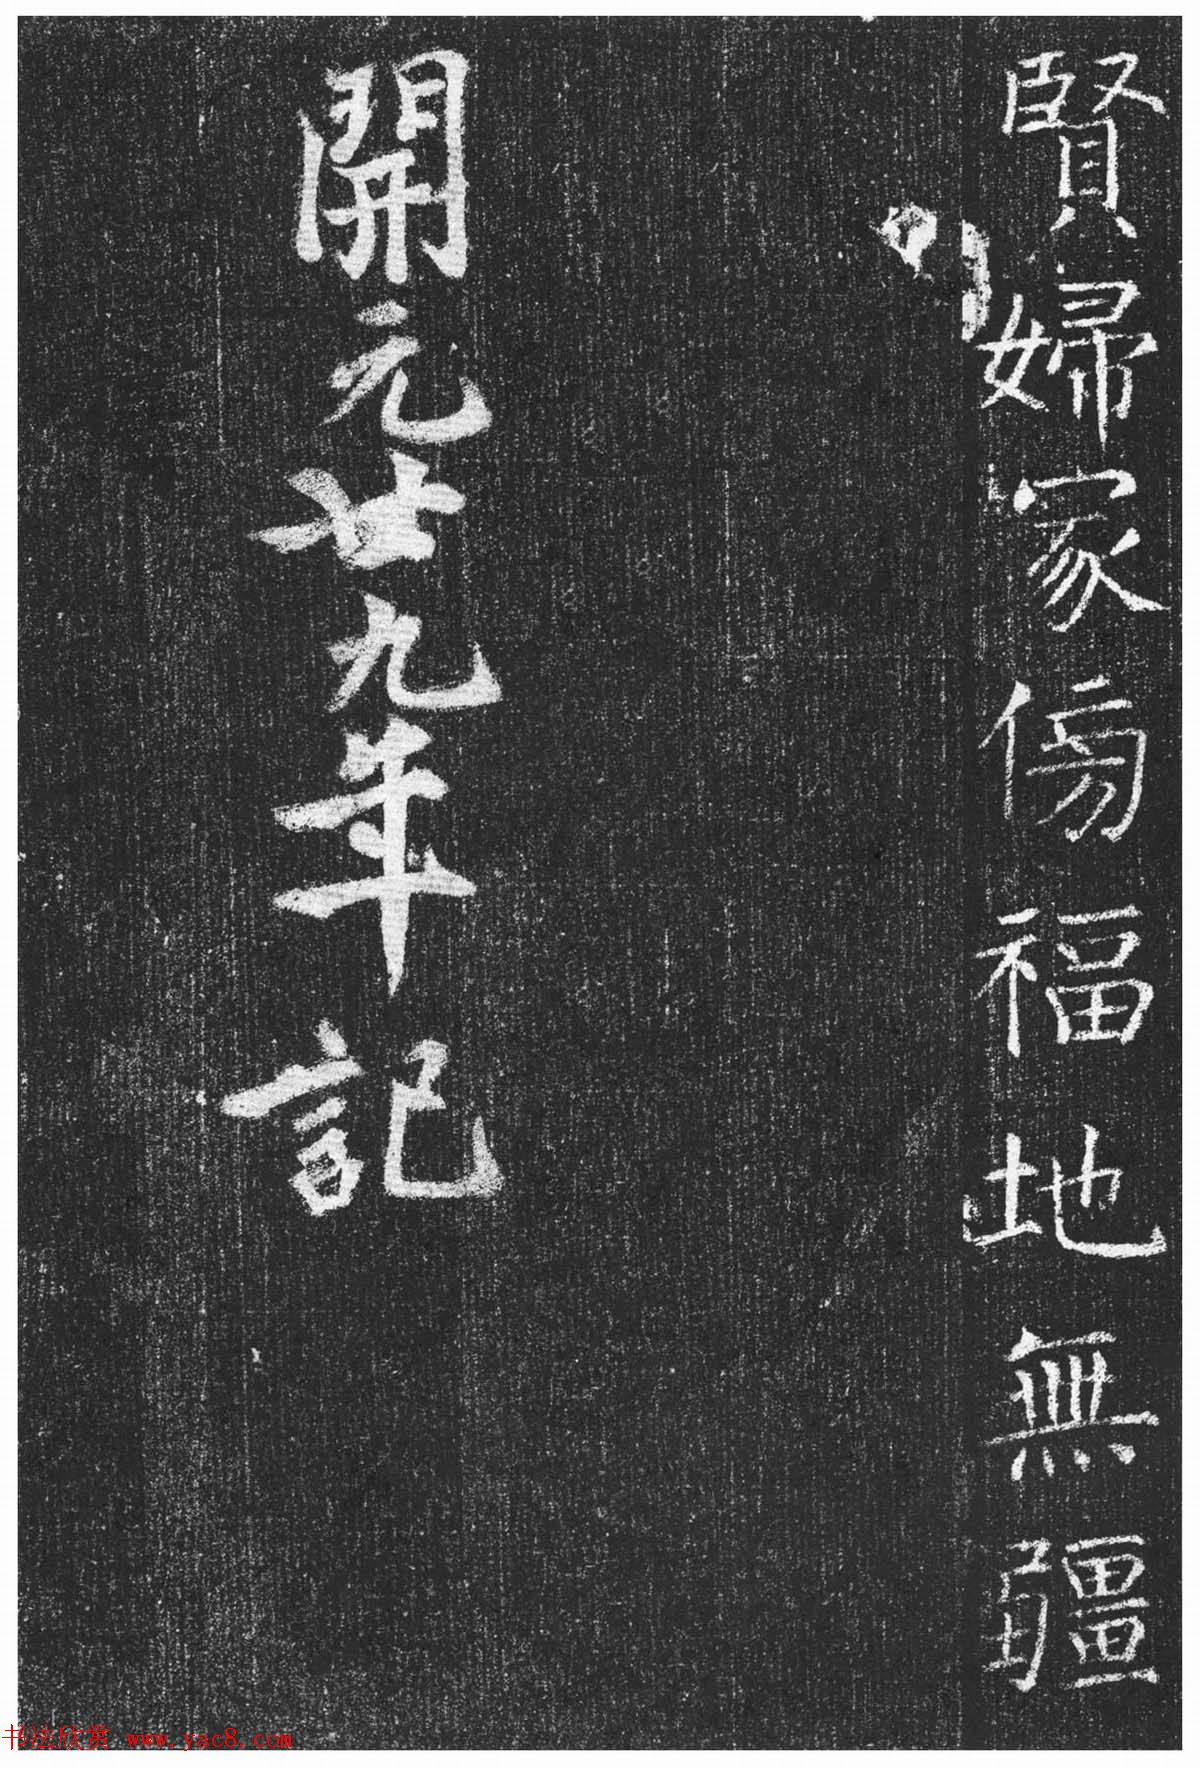 賢婦冢傍福地無疆
開元廿九年記
书法欣赏 www.yac8.com